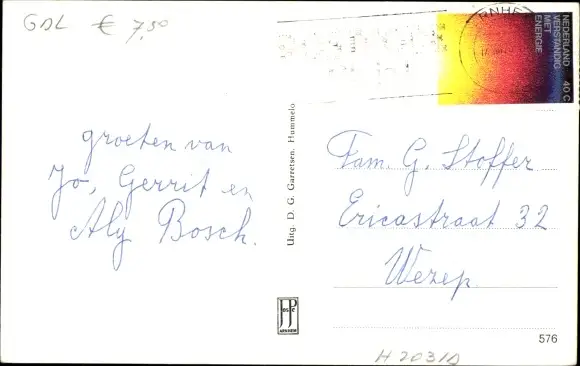 GDL € 7,50
groeten van
Jo, Gerrit en
Aly Bosch.
Uitg. D. G. Garretsen. Hummelo
NEDERLAND
VERSTANDIG
MET
ENERGIE
40 C
Fam. G. Stoffer
Ericastraat 32
Wezep
576
H 2031D